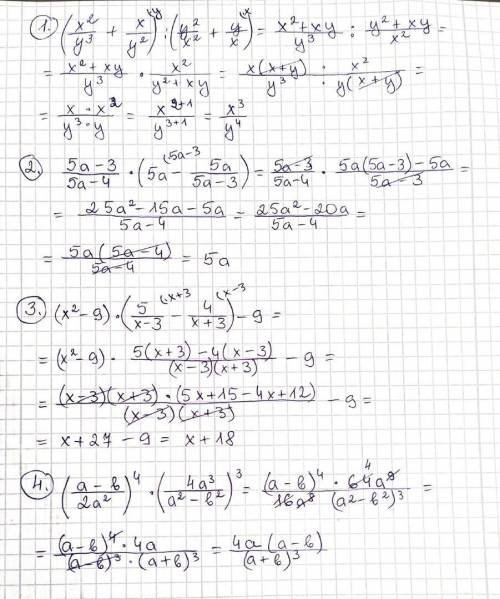 1. (x²/y³ + x/y²) : (y²/x² + y/x) = (x²+xy)/y³ : (y²+xy)/x² =
= (x²+xy)/y³ · x²/(y²+xy) = x(x+y)/y³ : x²/y(x+y) =
= x·x²/y³·y = x²⁺¹/y³⁺¹ = x³/y⁴
2. (5a-3)/(5a-4) · (5a - 5a/(5a-3)) = (5a-3)/(5a-4) · (5a(5a-3)-5a)/(5a-3) =
= (25a²-15a-5a)/(5a-4) = (25a²-20a)/(5a-4) =
= 5a(5a-4)/(5a-4) = 5a
3. (x²-9) · (5/(x-3) - 4/(x+3)) - 9 =
= (x²-9) · (5(x+3)-4(x-3))/(x-3)(x+3) - 9 =
= (x-3)(x+3)·(5x+15-4x+12)/(x-3)(x+3) - 9 =
= x+27-9 = x+18
4. ((a-b)/2a²)⁴ · (4a³/(a²-b²))³ = (a-b)⁴ · 64a⁹/16a⁸ (a²-b²)³ =
= (a-b)⁴·4a/(a-b)³·(a+b)³ = 4a(a-b)/(a+b)³